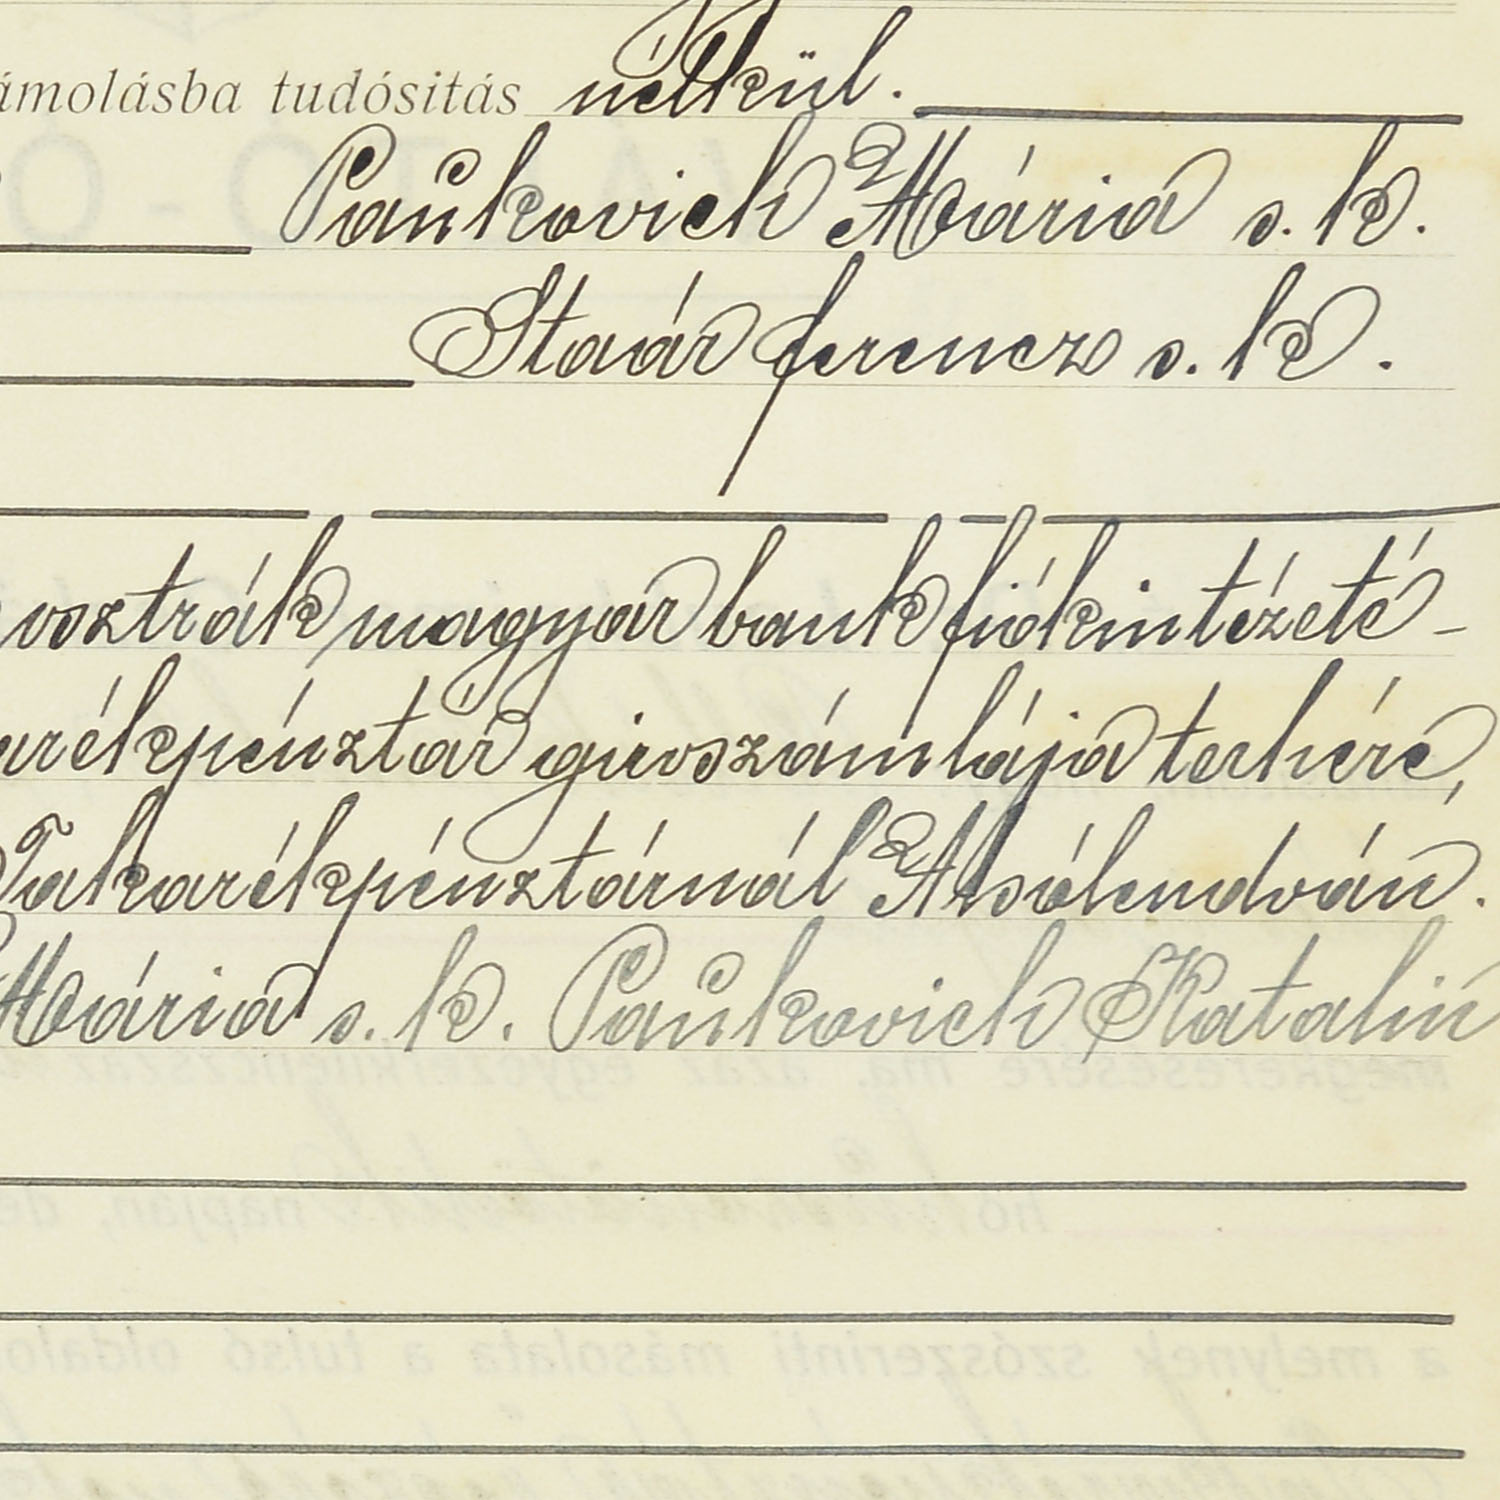 ámolásba tudósítás nélkül.
Paŭkovich Mária s. k.
Staár ferencz s. k.
osztrák magyar bank fiókintézeté-
arékpénztár giroszámlája terhére,
Takarékpénztárnál Alsólendván.
Mária s. k. Paŭkovich Katalin